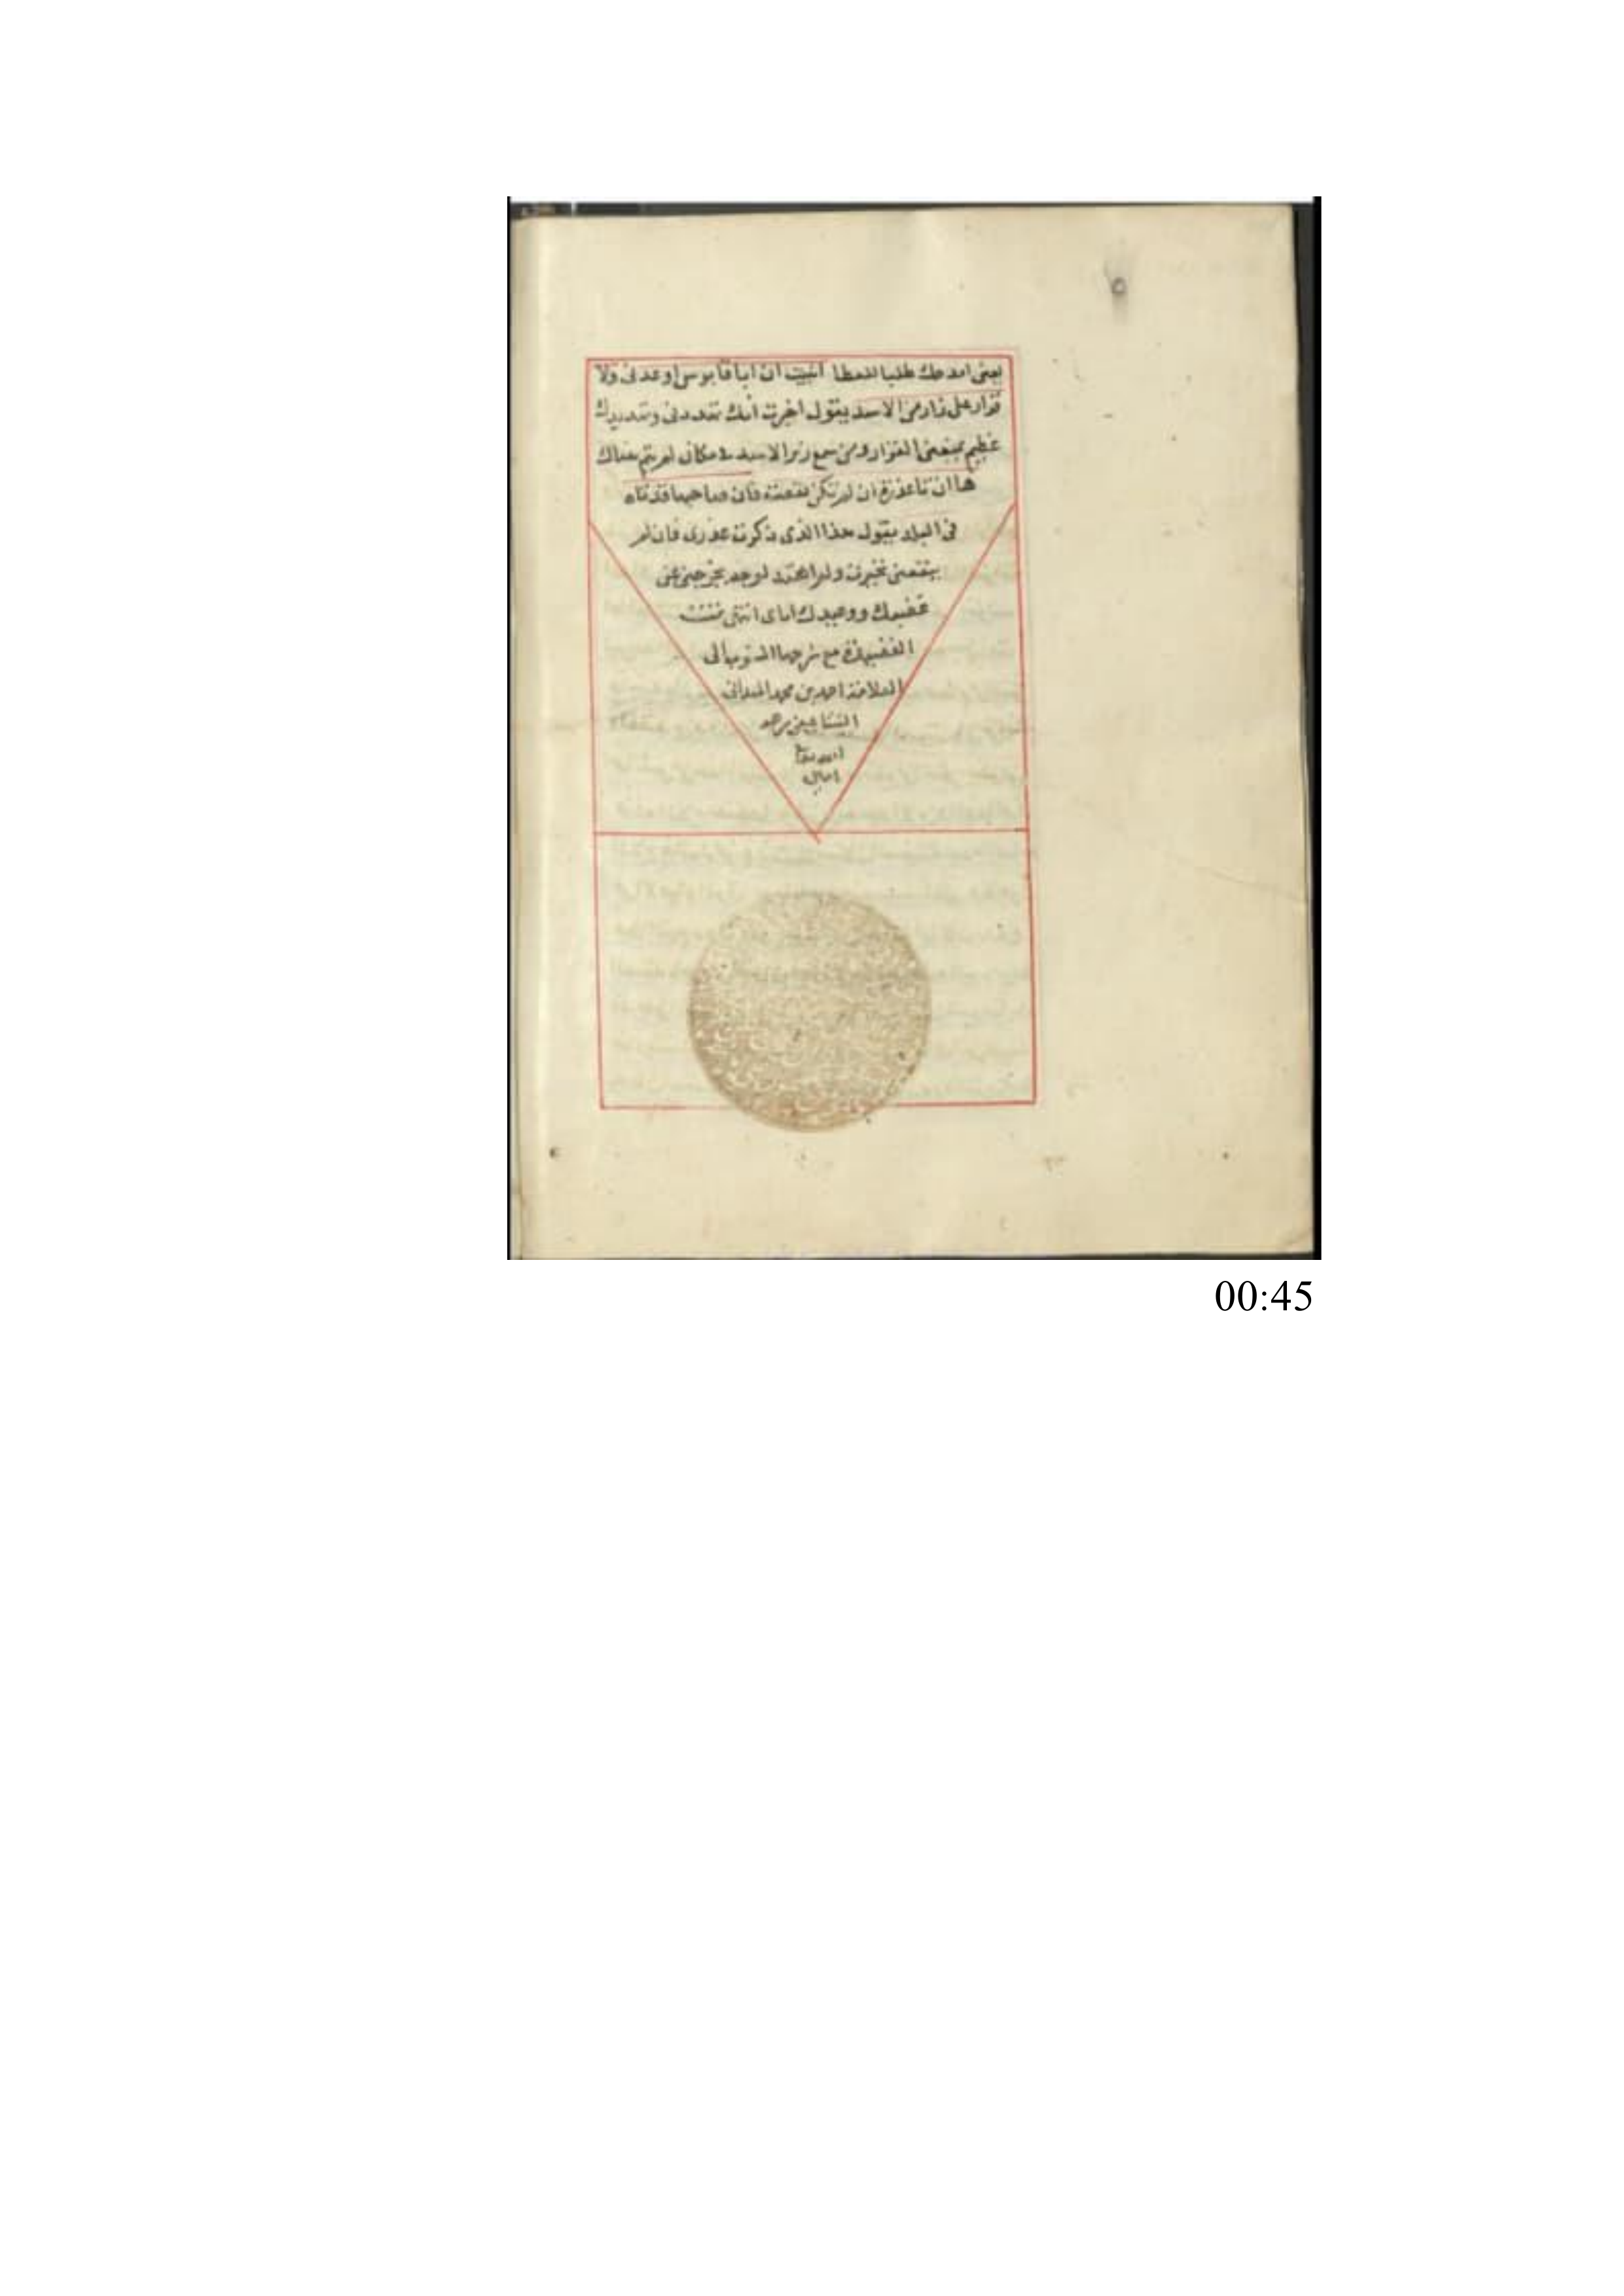 ٥
يعنى امدحك طلبا للعطا انبيت ان ابا قابوس اوعدنى ولا
قرار على زار من الاسد يقول اخبرت انك تهددنى وتهديدك
عظيم يمنعنى القرار ومن سمع زئر الاسد فى مكان لم يقم هناك
ها ان تا عذرة ان لم تكن نفعت فان صاحبها قد تاه
فى البلد يقول هذا الذى ذكرت عذرى فان لم
ينفعنى تحيرت ولم اهتد لوجه يخرجنى عن
غضبك ووعيدك اياى انتهى تمت
القصيدة مع شرحها المنسوب الى
العلامة احمد بن محمد
رحمه
الله تعا
امين
00:45